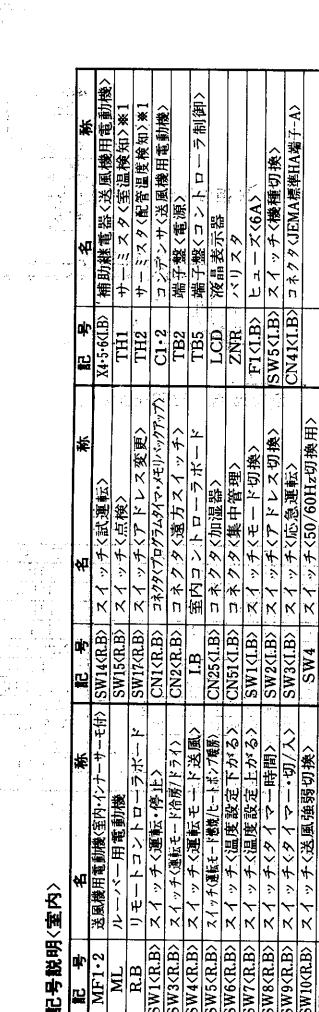 記号説明<室内>
記号 名称 記号 名称 記号 名称
MF1・2 送風機用電動機<室内・インナーサーモ付> SW14<R.B> スイッチ<試運転> X4・5・6<I.B> 補助継電器<送風機用電動機>
ML ルーバー用電動機 SW15<R.B> スイッチ<点検> TH1 サーミスタ<室温検知>※1
R.B リモートコントローラボード SW17<R.B> スイッチ<アドレス変更> TH2 サーミスタ<配管温度検知>※1
SW1<R.B> スイッチ<運転・停止> CN1<R.B> コネクタ<プログラムタイマ・メモリバックアップ> C1・2 コンデンサ<送風機用電動機>
SW3<R.B> スイッチ<運転モード冷房/ドライ> CN2<R.B> コネクタ<遠方スイッチ> TB2 端子盤<電源>
SW4<R.B> スイッチ<運転モード送風> I.B 室内コントローラボード TB5 端子盤<コントローラ制御>
SW5<R.B> スイッチ<運転モード燃焼/ヒートポンプ暖房> CN25<I.B> コネクタ<加湿器> LCD 液晶表示器
SW6<R.B> スイッチ<温度設定下がる> CN51<I.B> コネクタ<集中管理> ZNR バリスタ
SW7<R.B> スイッチ<温度設定上がる> SW1<I.B> スイッチ<モード切換> F1<I.B> ヒューズ<6A>
SW8<R.B> スイッチ<タイマー時間> SW2<I.B> スイッチ<アドレス切換> SW5<I.B> スイッチ<機種切換>
SW9<R.B> スイッチ<タイマー・切/入> SW3<I.B> スイッチ<応急運転> CN41<I.B> コネクタ<JEMA標準HA端子-A>
SW10<R.B> スイッチ<送風強弱切換> SW4 スイッチ<50/60Hz切換用>